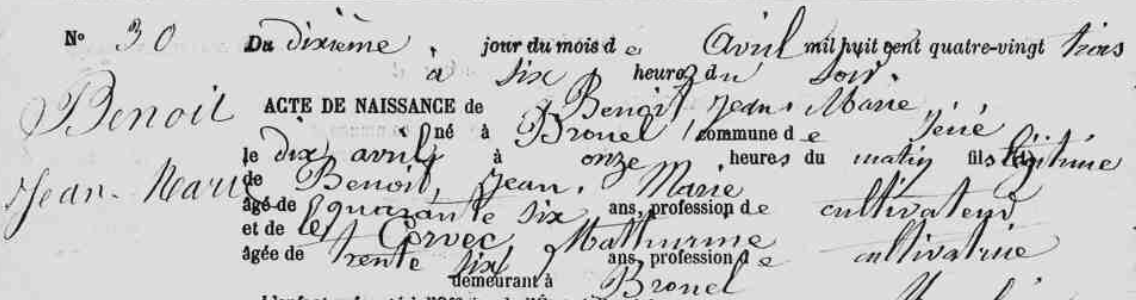 N° 30 Du dixième jour du mois de Avril mil huit cent quatre-vingt trois
à six heures du soir.
Benoit
ACTE DE NAISSANCE de Benoit Jean Marie
né à Bronel commune de
le dix avril à onze heures du matin fils légitime
Jean-Marie
de Benoit, Jean, Marie
âgé de quarante six ans, profession de cultivateur
et de Le Corvec, Mathurine
âgée de trente six ans, profession de cultivatrice
demeurant à Bronel